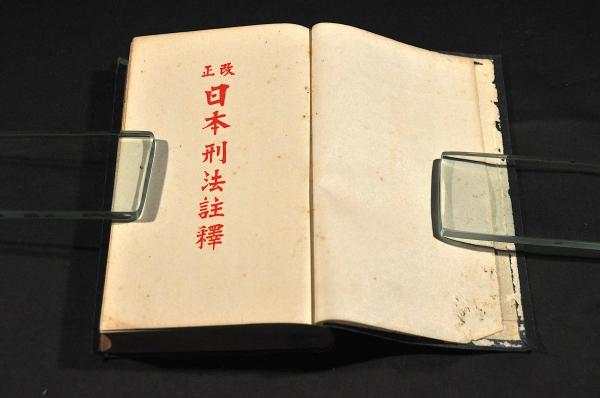 改正
日本刑法註釋